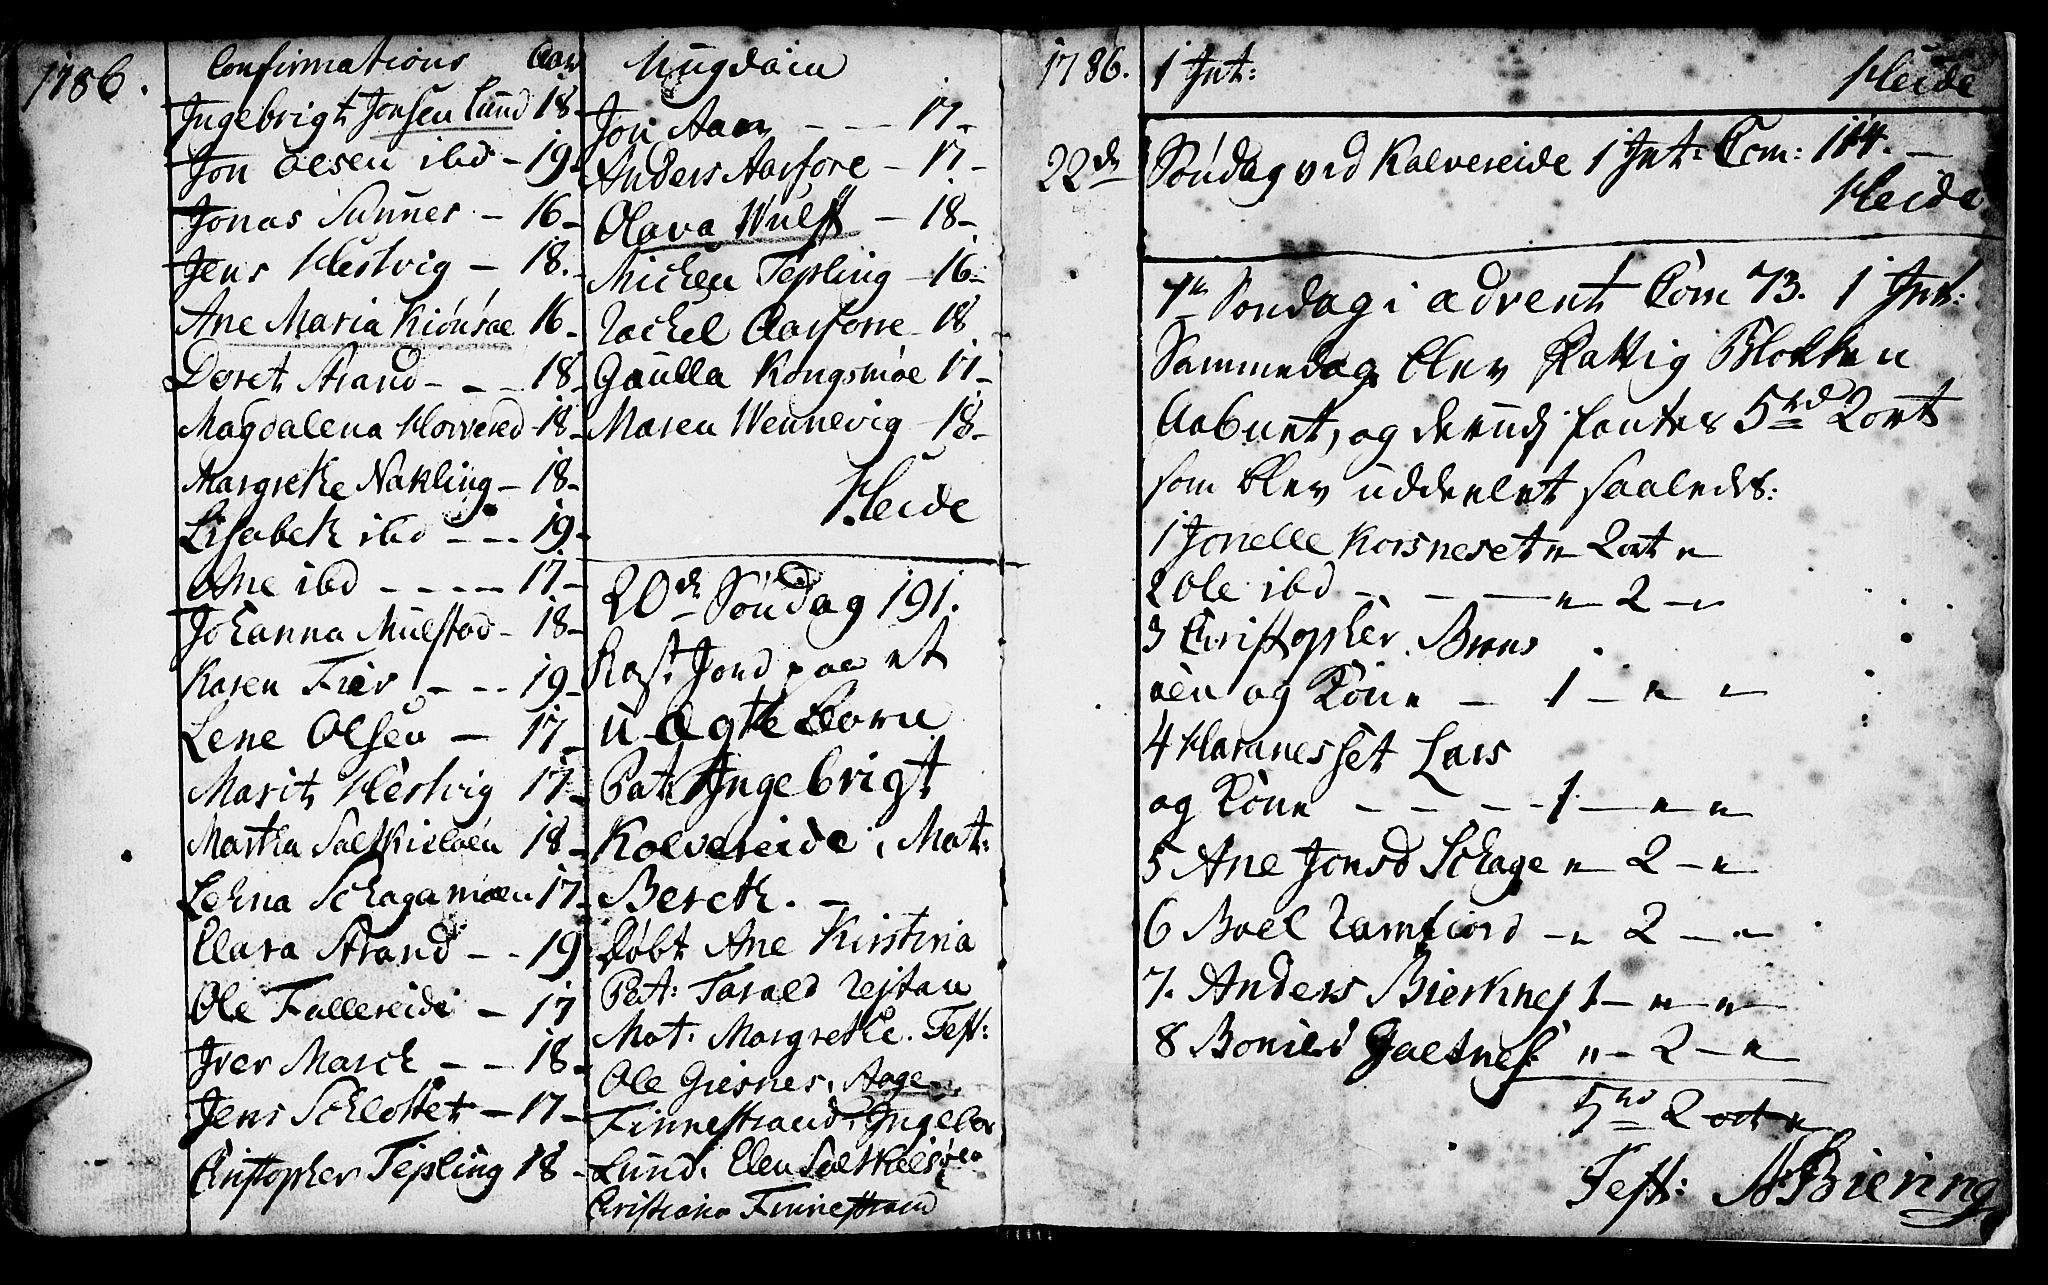 1786.
Confirmations Aar
Ingebrigt Jonsen Lund 18-
Jon Olsen ibd - 19-
Jonas Sunnes - 16-
Jens Hestvig - 18.-
Ane Maria Kiönsøe 16-
Doret Strand - - - 18-
Magdalena Horvered 18-
Margrethe Nakling - 18-
Lisabeth ibd - - - 19-
Ane ibd - - - - - 17-
Johanna Mulstad - 18-
Karen Fier - - - 19-
Lene Olsen - 17-
Marit Hestvig 17-
Martha Saltkieløen 18-
Lehna Schagamoen 17-
Clara Strand - - 19
Ole Fallereide - 17
Iver Marsch - - 18-
Jens Schlottet - 17-
Christopher Tepling 18-
Ungdom
Jon Aan - - - 17-
Anders Aarfore - 17-
Olava Wulff - 18-
Michen Tepling - 16-
Rachel Aarforre - 18
Gunilla Kongsmoe 17-
Maren Wennevig - 18-
Heide
20de Søndag 191.
Kast Jord paa et
u-ægte Barn
Pat: Ingebrigt
Kolvereide, Mat:
Bereth. -
døbt Ane Kirstina
Pat: Tarald
Mat: Margrethe. Test:
Ole Giesnes, Aage
Finnestrand, Ingebor
Lund. Elen Saltkieløen
Christiana Finnestrand
1786. 1 Int: Heide
22de Søndag ved Kolvereide 1 Int: Com: 114. -
Heide
1te Søndag i advent Com 73. 1 Int:
Sammedag blev Fattig Blokken
aabnet, og derudj fantes 5rd 2 ort
som blev uddeelet saaledes:
1 Jonelle Korsneset " 2 ort "
2 Ole ibd - - - " - 2 - "
3 Christopher Brons
øen og Kone - 1 - " "
4 Haranesset Lars
og Kone - - - - 1 - " "
5 Ane Jonsd Schage " 2 - "
6 Boel Ramfiord - " 2 - " -
7. Anders Bierknes 1 - " - "
8 Bonild Galtnes " - 2 - "
5rd 2 ort "
Test: N Biering